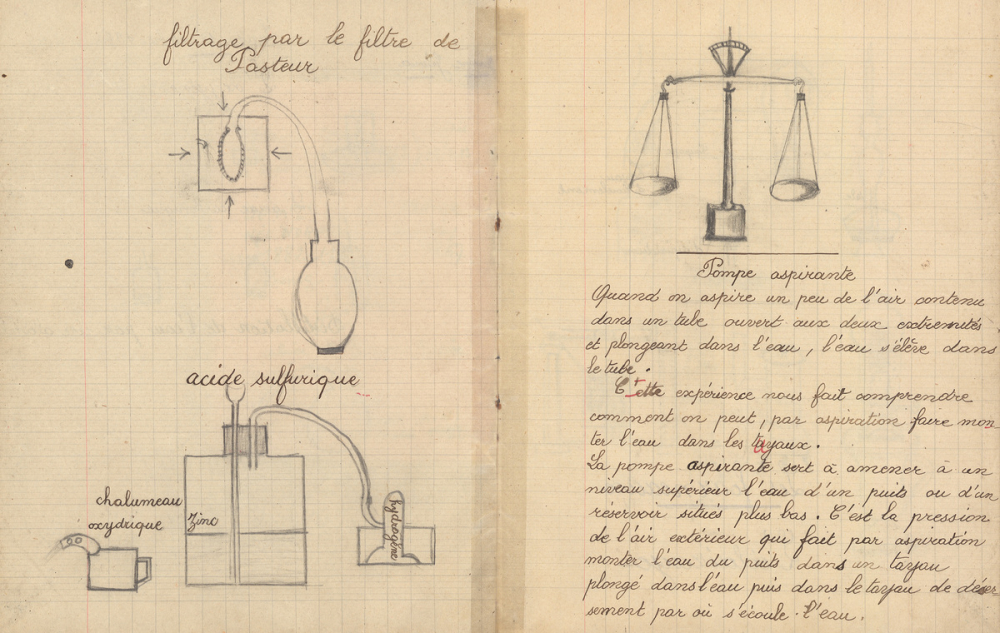 filtrage par le filtre de
Pasteur
acide sulfurique
chalumeau
oxydrique
Zinc
hydrogène
Pompe aspirante
Quand on aspire un peu de l'air contenu
dans un tube ouvert aux deux extremités
et plongeant dans l'eau, l'eau s'élève dans
le tube.
Cette expérience nous fait comprendre
comment on peut, par aspiration faire mon
ter l'eau dans les tuyaux.
La pompe aspirante sert à amener à un
niveau supérieur l'eau d'un puits ou d'un
réservoir situés plus bas. C'est la pression
de l'air extérieur qui fait par aspiration
monter l'eau du puits dans un tayau
plongé dans l'eau puis dans le tayau de déver
sement par où s'écoule l'eau.